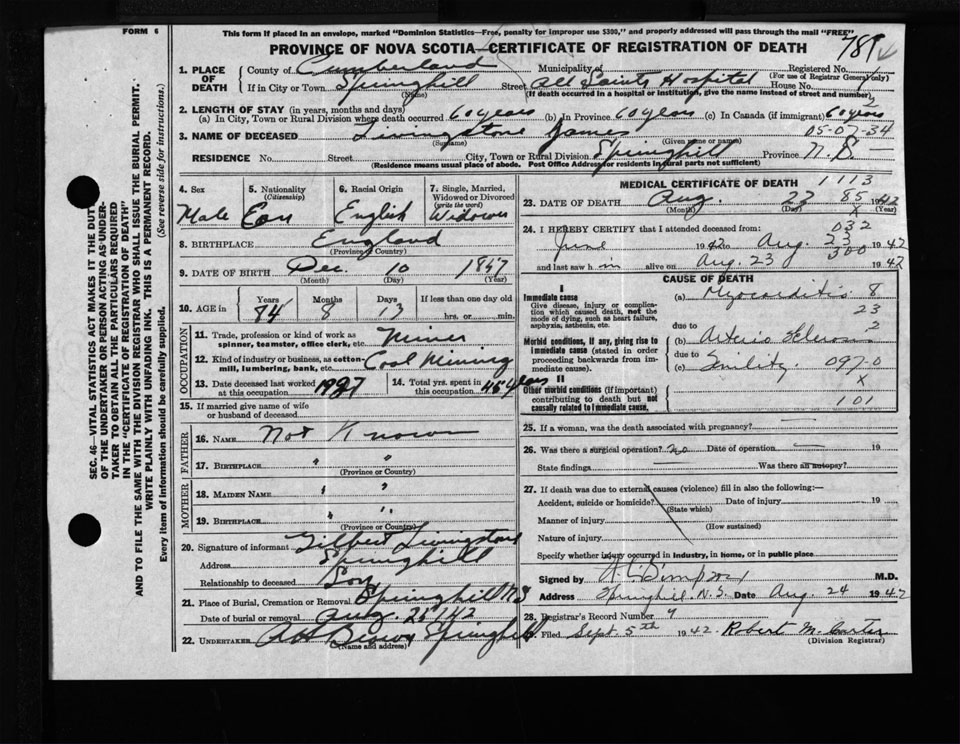 FORM 6
This form if placed in an envelope, marked "Dominion Statistics—Free, penalty for improper use $300," and properly addressed will pass through the mail "FREE"
PROVINCE OF NOVA SCOTIA—CERTIFICATE OF REGISTRATION OF DEATH
789
1. PLACE OF DEATH
County of Cumberland Municipality of Registered No.
(For use of Registrar General only)
If in City or Town Springhill Street All Saints Hospital House No.
(Name) (If death occurred in a hospital or institution, give the name instead of street and number)
2. LENGTH OF STAY (in years, months and days)
(a) In City, Town or Rural Division where death occurred 60 years (b) In Province 60 years (c) In Canada (if immigrant) 60 years
3. NAME OF DECEASED Livingstone James 05-07-34
(Surname) (Given name or names)
RESIDENCE No. Street City, Town or Rural Division Springhill Province N.S.
(Residence means usual place of abode. Post Office Address for residents in rural parts not sufficient)
4. Sex Male
5. Nationality (Citizenship) Can
6. Racial Origin English
7. Single, Married, Widowed or Divorced (write the word) Widower
8. BIRTHPLACE England
(Province or Country)
9. DATE OF BIRTH Dec. 10 1857
(Month) (Day) (Year)
10. AGE in Years 84 Months 8 Days 13 If less than one day old hrs. or min.
OCCUPATION
11. Trade, profession or kind of work as spinner, teamster, office clerk, etc. Miner
12. Kind of industry or business, as cotton-mill, lumbering, bank, etc. Coal Mining
13. Date deceased last worked at this occupation 1927
14. Total yrs. spent in this occupation 45 years
15. If married give name of wife or husband of deceased
FATHER
16. NAME Not Known
17. BIRTHPLACE " "
(Province or Country)
MOTHER
18. MAIDEN NAME " "
19. BIRTHPLACE " "
(Province or Country)
20. Signature of informant Gilbert Livingstone
Address Springhill
Relationship to deceased Son
21. Place of Burial, Cremation or Removal Springhill N.S
Date of burial or removal Aug. 25/42
22. UNDERTAKER AH Brown Springhill
(Name and address)
MEDICAL CERTIFICATE OF DEATH 1113
23. DATE OF DEATH Aug. 23 85 1942
(Month) (Day) X (Year)
24. I HEREBY CERTIFY that I attended deceased from: 032
June 1942 to Aug. 23 1942
300
and last saw him alive on Aug. 23 1942
CAUSE OF DEATH
I
Immediate cause
Give disease, injury or complication which caused death, not the mode of dying, such as heart failure, asphyxia, asthenia, etc.
(a) Myocarditis 8
23
due to 2
Morbid conditions, if any, giving rise to immediate cause (stated in order proceeding backwards from immediate cause)
(b) Arterio Sclerosis
due to
(c) Senility 097-0
X
II
Other morbid conditions (if important) contributing to death but not causally related to immediate cause.
101
25. If a woman, was the death associated with pregnancy?
26. Was there a surgical operation? No Date of operation 19
State findings Was there an autopsy?
27. If death was due to external causes (violence) fill in also the following:—
Accident, suicide or homicide? Date of injury 19
(State which)
Manner of injury
(How sustained)
Nature of injury
Specify whether injury occurred in industry, in home, or in public place
Signed by M.D.
Address Springhill. N.S. Date Aug. 24 1942
28. Registrar's Record Number 9
Filed Sept. 5th 1942. Robert M.
(Division Registrar)
SEC. 46—VITAL STATISTICS ACT MAKES IT THE DUTY
OF THE UNDERTAKER OR PERSON ACTING AS UNDER-
TAKER TO OBTAIN ALL THE PARTICULARS REQUIRED
IN THE "CERTIFICATE OF REGISTRATION OF DEATH"
AND TO FILE THE SAME WITH THE DIVISION REGISTRAR WHO SHALL ISSUE THE BURIAL PERMIT.
WRITE PLAINLY WITH UNFADING INK. THIS IS A PERMANENT RECORD.
Every item of information should be carefully supplied. (See reverse side for instructions.)